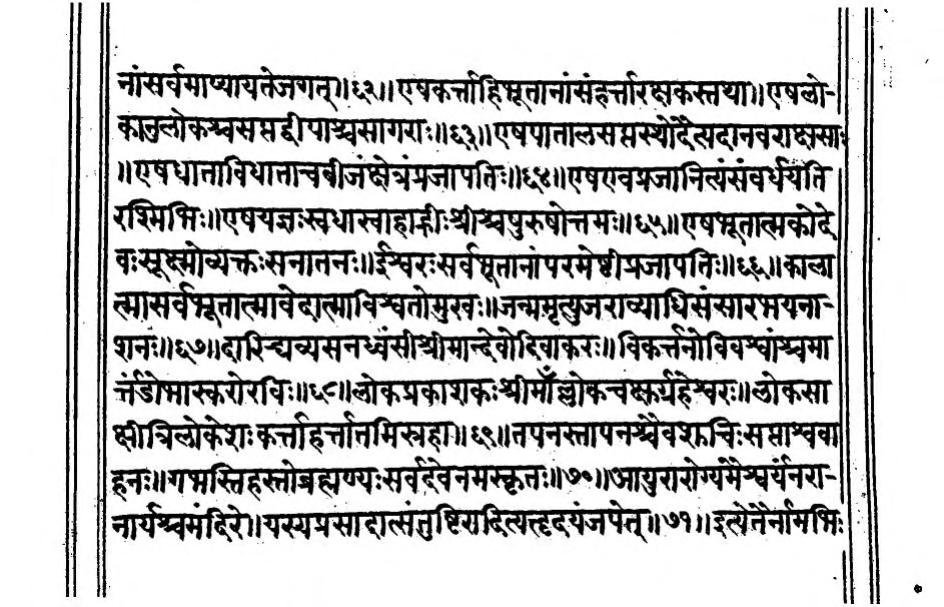 नांसर्वमाप्यायतेजगत्॥६२॥एषकर्त्ताहिभूतानांसंहर्त्तारक्षकस्तथा॥एषलो-
कानुलोकश्चसप्तद्वीपाश्चसागराः॥६३॥एषपातालसप्तस्थोदैत्यदानवराक्षसाः
॥एषधाताविधाताचबीजंक्षेत्रंप्रजापतिः॥६४॥एषएवप्रजानित्यंसंवर्धयति
रश्मिभिः॥एषयज्ञःस्वधास्वाहाह्रीःश्रीश्चपुरुषोत्तमः॥६५॥एषभूतात्मकोदे
वःसूक्ष्मोव्यक्तःसनातनः॥ईश्वरःसर्वभूतानांपरमेष्ठीप्रजापतिः॥६६॥काला
त्मासर्वभूतात्मावेदात्माविश्वतोमुखः॥जन्ममृत्युजराव्याधिसंसारभयना
शनः॥६७॥दारिद्र्यव्यसनध्वंसीश्रीमान्देवोदिवाकरः॥विकर्त्तनोविवश्वांश्चमा
र्त्तंडोभास्करोरविः॥६८॥लोकप्रकाशकःश्रीमाँल्लोकचक्षुर्ग्रहेश्वरः॥लोकसा
क्षीत्रिलोकेशःकर्त्ताहर्त्तातमिस्रहा॥६९॥तपनस्तापनश्चैवशुचिःसप्ताश्ववा
हनः॥गभस्तिहस्तोब्रह्मण्यःसर्वदेवनमस्कृतः॥७०॥आयुरारोग्यमैश्वर्यंनरा-
नार्यश्चमंदिरे॥यस्यप्रसादात्संतुष्टिरादित्यहृदयंजपेत्॥७१॥इत्येतैर्नामभिः